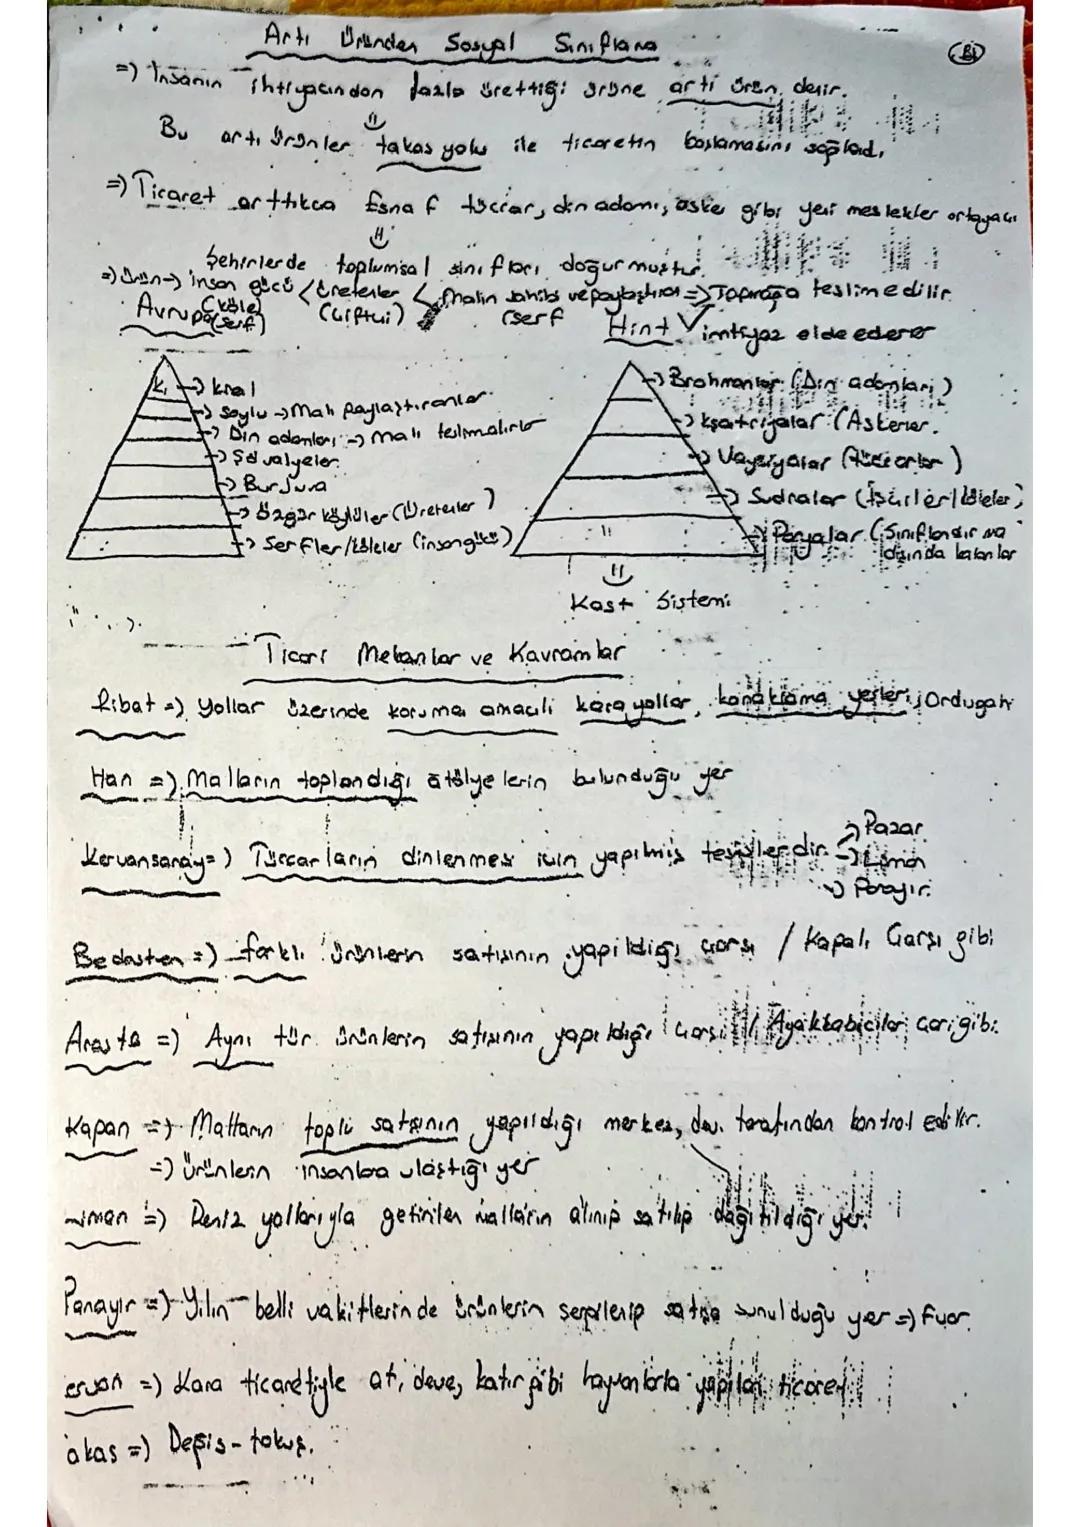 Artı Üründen Sosyal Sınıflara
=) İnsanın ihtiyacından fazla ürettiği ürüne artı ürün denir.
Bu artı ürünler takas yolu ile ticaretin başlamasını sağladı.
=) Ticaret arttıkca Esnaf tüccar, din adamı, asker gibi yeni meslekler ortaya
Şehirlerde toplumsal sınıfları doğurmuştur.
=) Ürün -> insan gücü / Üretenler < Malın sahibi ve paylaştıran => Toprağa teslim edilir.
Avrupa (köle) (serf) (Çiftçi) (serf Hint imtiyaz elde ederer
K. -> kral
-> Soylu -> Malı paylaştıranlar.
-> Din adamları -> malı teslimalırlar
-> Şövalyeler
-> Burjuva
-> Özgür köylüler (Üretenler)
-> Serfler/köleler (insangücü)
-> Brahmanlar (Din adamları)
-> Kşatriyalar (Askerler.
-> Vaysiyalar (Tüccarlar)
-> Sudralar (İşçiler/köleler)
-> Paryalar (Sınıflandırma dışında kalanlar
Kast Sistemi
Ticari Mekanlar ve Kavramlar
Ribat =) Yollar üzerinde koruma amaçlı kara yollar, konaklama yerleri, Ordugah
Han =) Malların toplandığı atölyelerin bulunduğu yer
Kervansaray =) Tüccarların dinlenmesi için yapılmış tesislerdir. -> Pazar
-> Liman
-> Panayır.
Bedesten =) farklı ürünlerin satışının yapıldığı çarşı / Kapalı Çarşı gibi
Arasta =) Aynı tür ürünlerin satışının yapıldığı çarşı / Ayakkabıcılar çarşı gibi.
Kapan =) Malların toplu satışının yapıldığı merkez, dev. tarafından kontrol edilir.
=) ürünlerin insanlara ulaştığı yer
iman =) Deniz yollarıyla getirilen malların alınıp satılıp dağıtıldığı yer.
Panayır =) Yılın belli vakitlerinde ürünlerin sergilenip satışa sunulduğu yer =) Fuar.
ervan =) Kara ticaretiyle at, deve, katır gibi hayvanlarla yapılan ticaret
akas =) Değiş-tokuş.